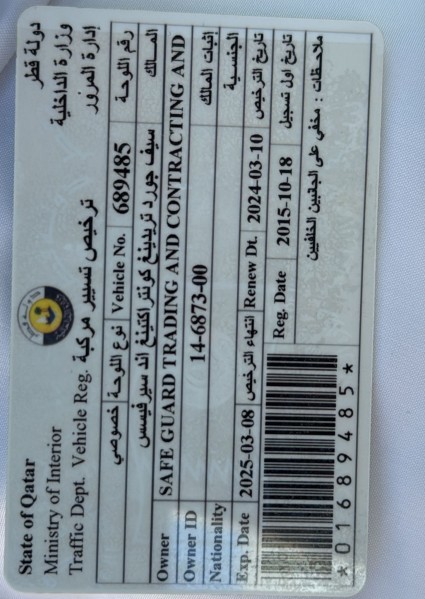 State of Qatar دولة قطر
Ministry of Interior وزارة الداخلية
Traffic Dept. Vehicle Reg. ترخيص تسيير مركبة إدارة المرور
نوع اللوحة خصوصي Vehicle No. 689485 رقم اللوحة
سيف جورد تريدينغ كونتراكتينغ اند سيرفيسس المالك
Owner SAFE GUARD TRADING AND CONTRACTING AND
Owner ID 14-6873-00 إثبات المالك
Nationality الجنسية
Exp. Date 2025-03-08 انتهاء الترخيص Renew Dt. 2024-03-10 تاريخ الترخيص
Reg. Date 2015-10-18 تاريخ اول تسجيل
ملاحظات : مخفي على الجنبين الخلفيين
*01689485*